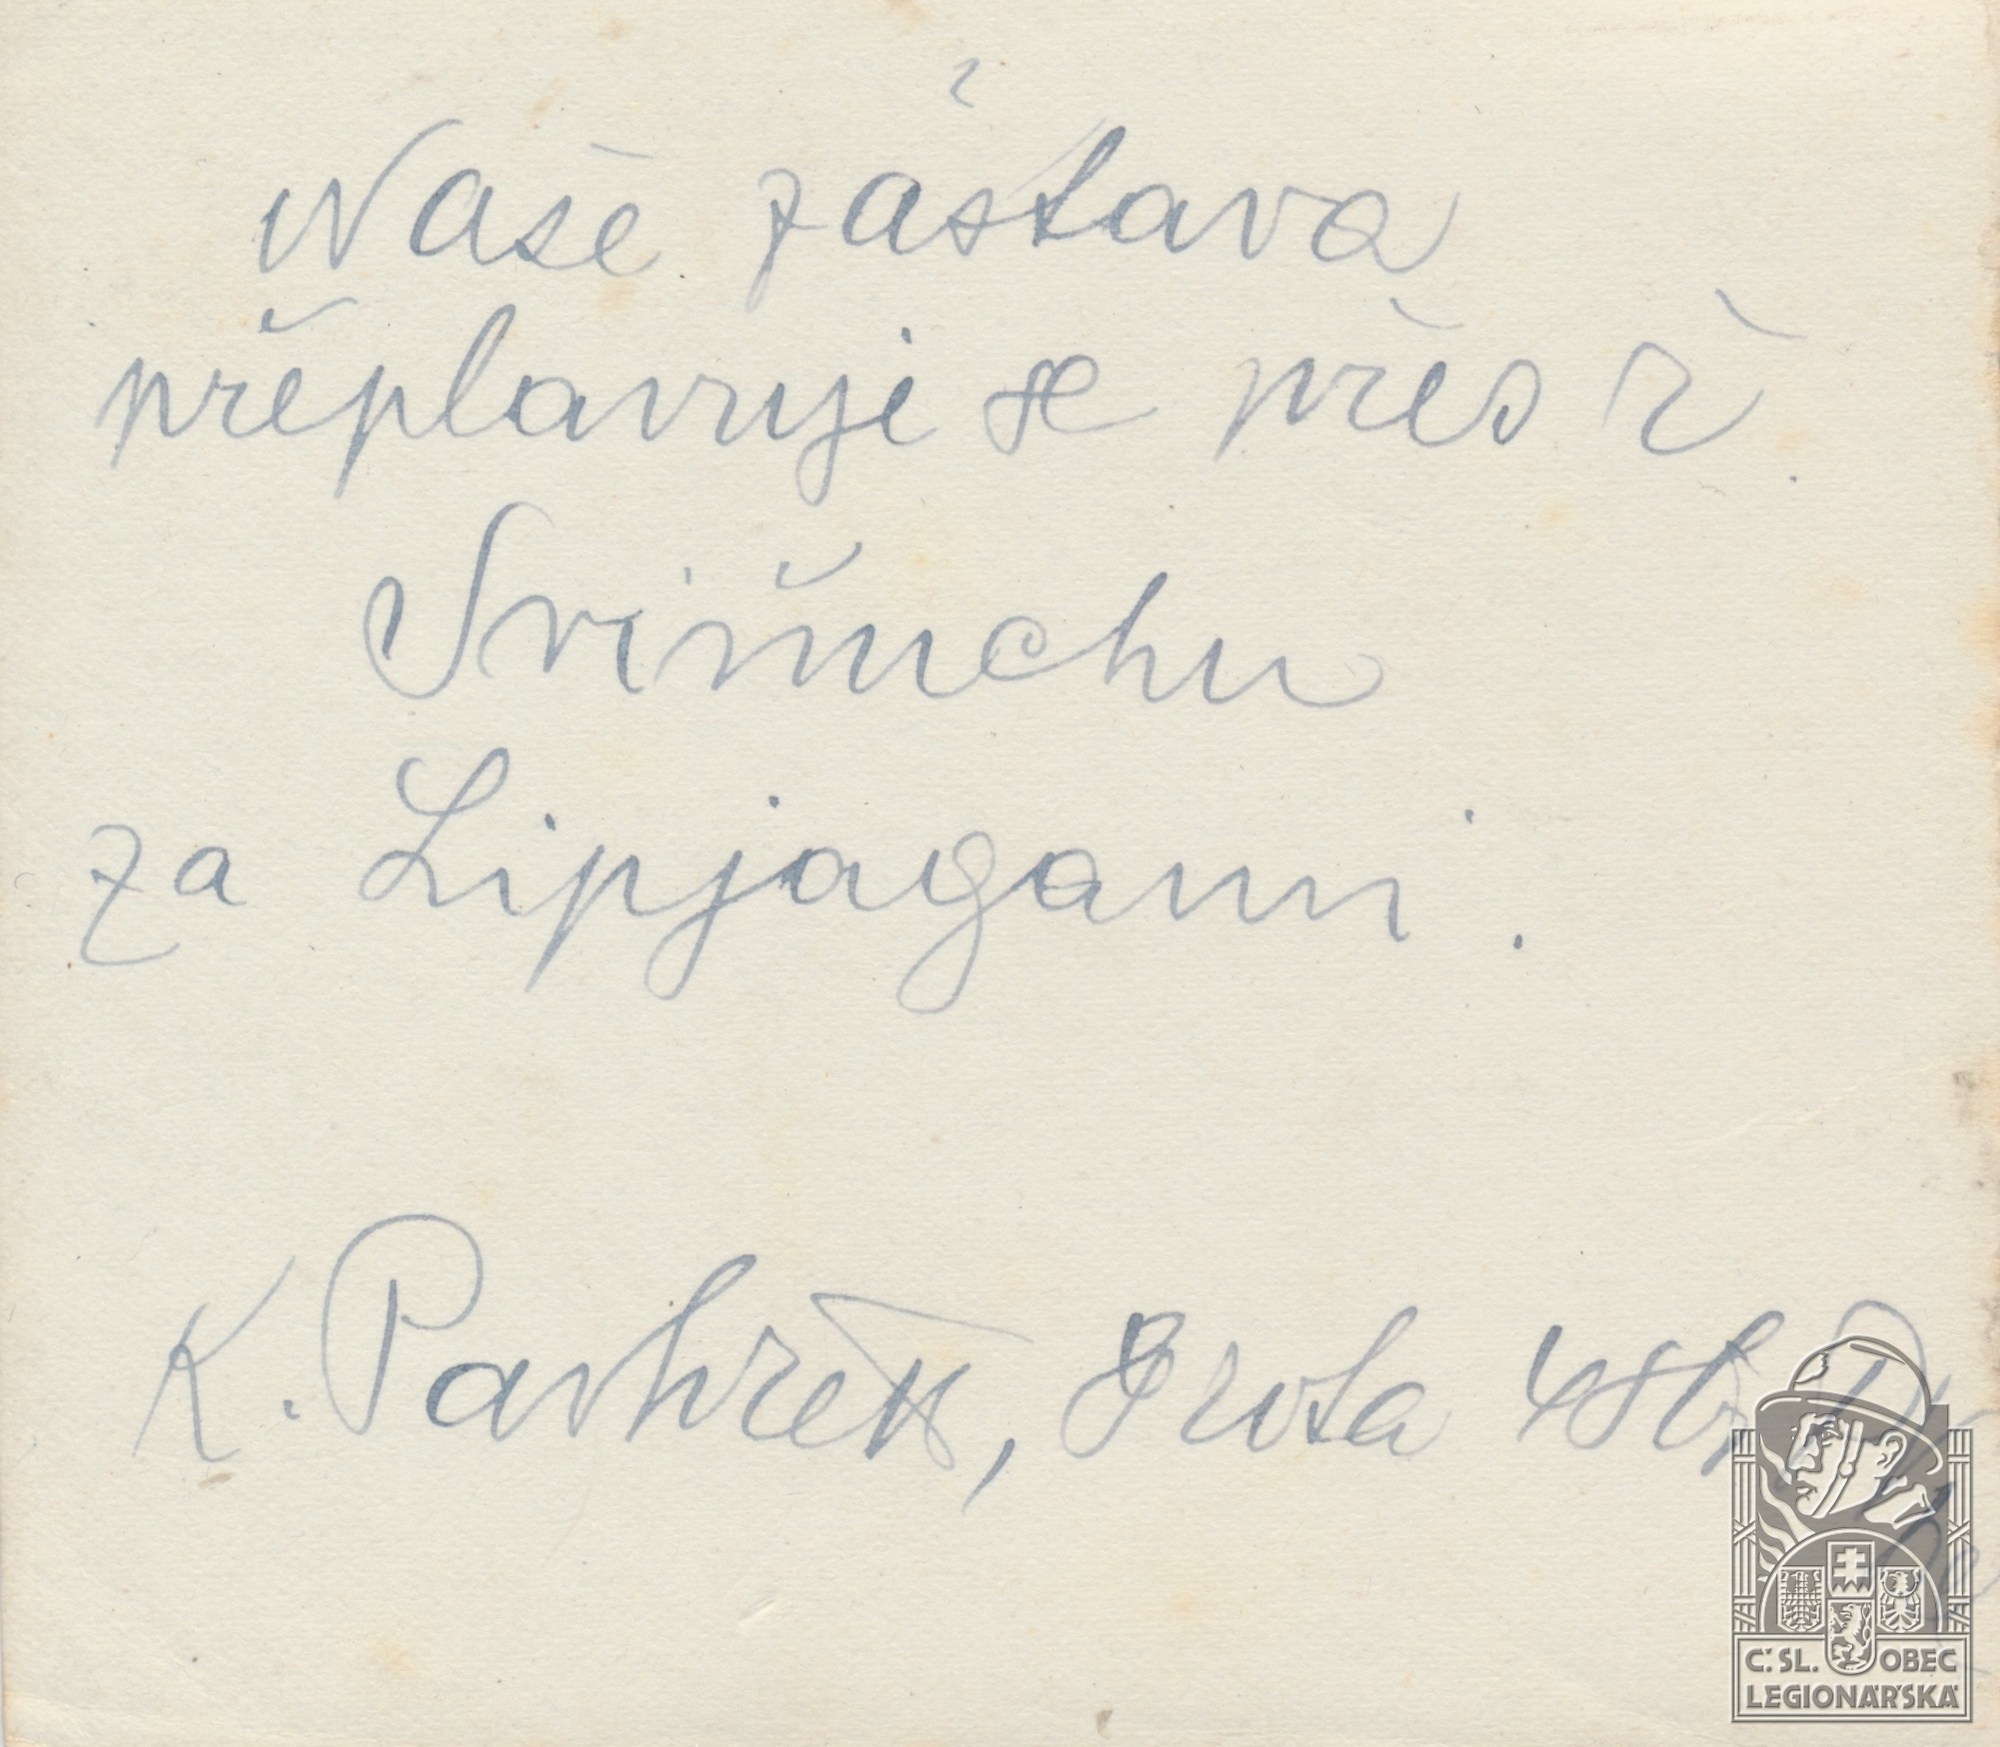 Naše zástava
přeplavuje se přes ř.
Svižuchu
za Lipjagami.
K. Pavhřek,
Č.SL. OBEC
LEGIONÁŘSKÁ